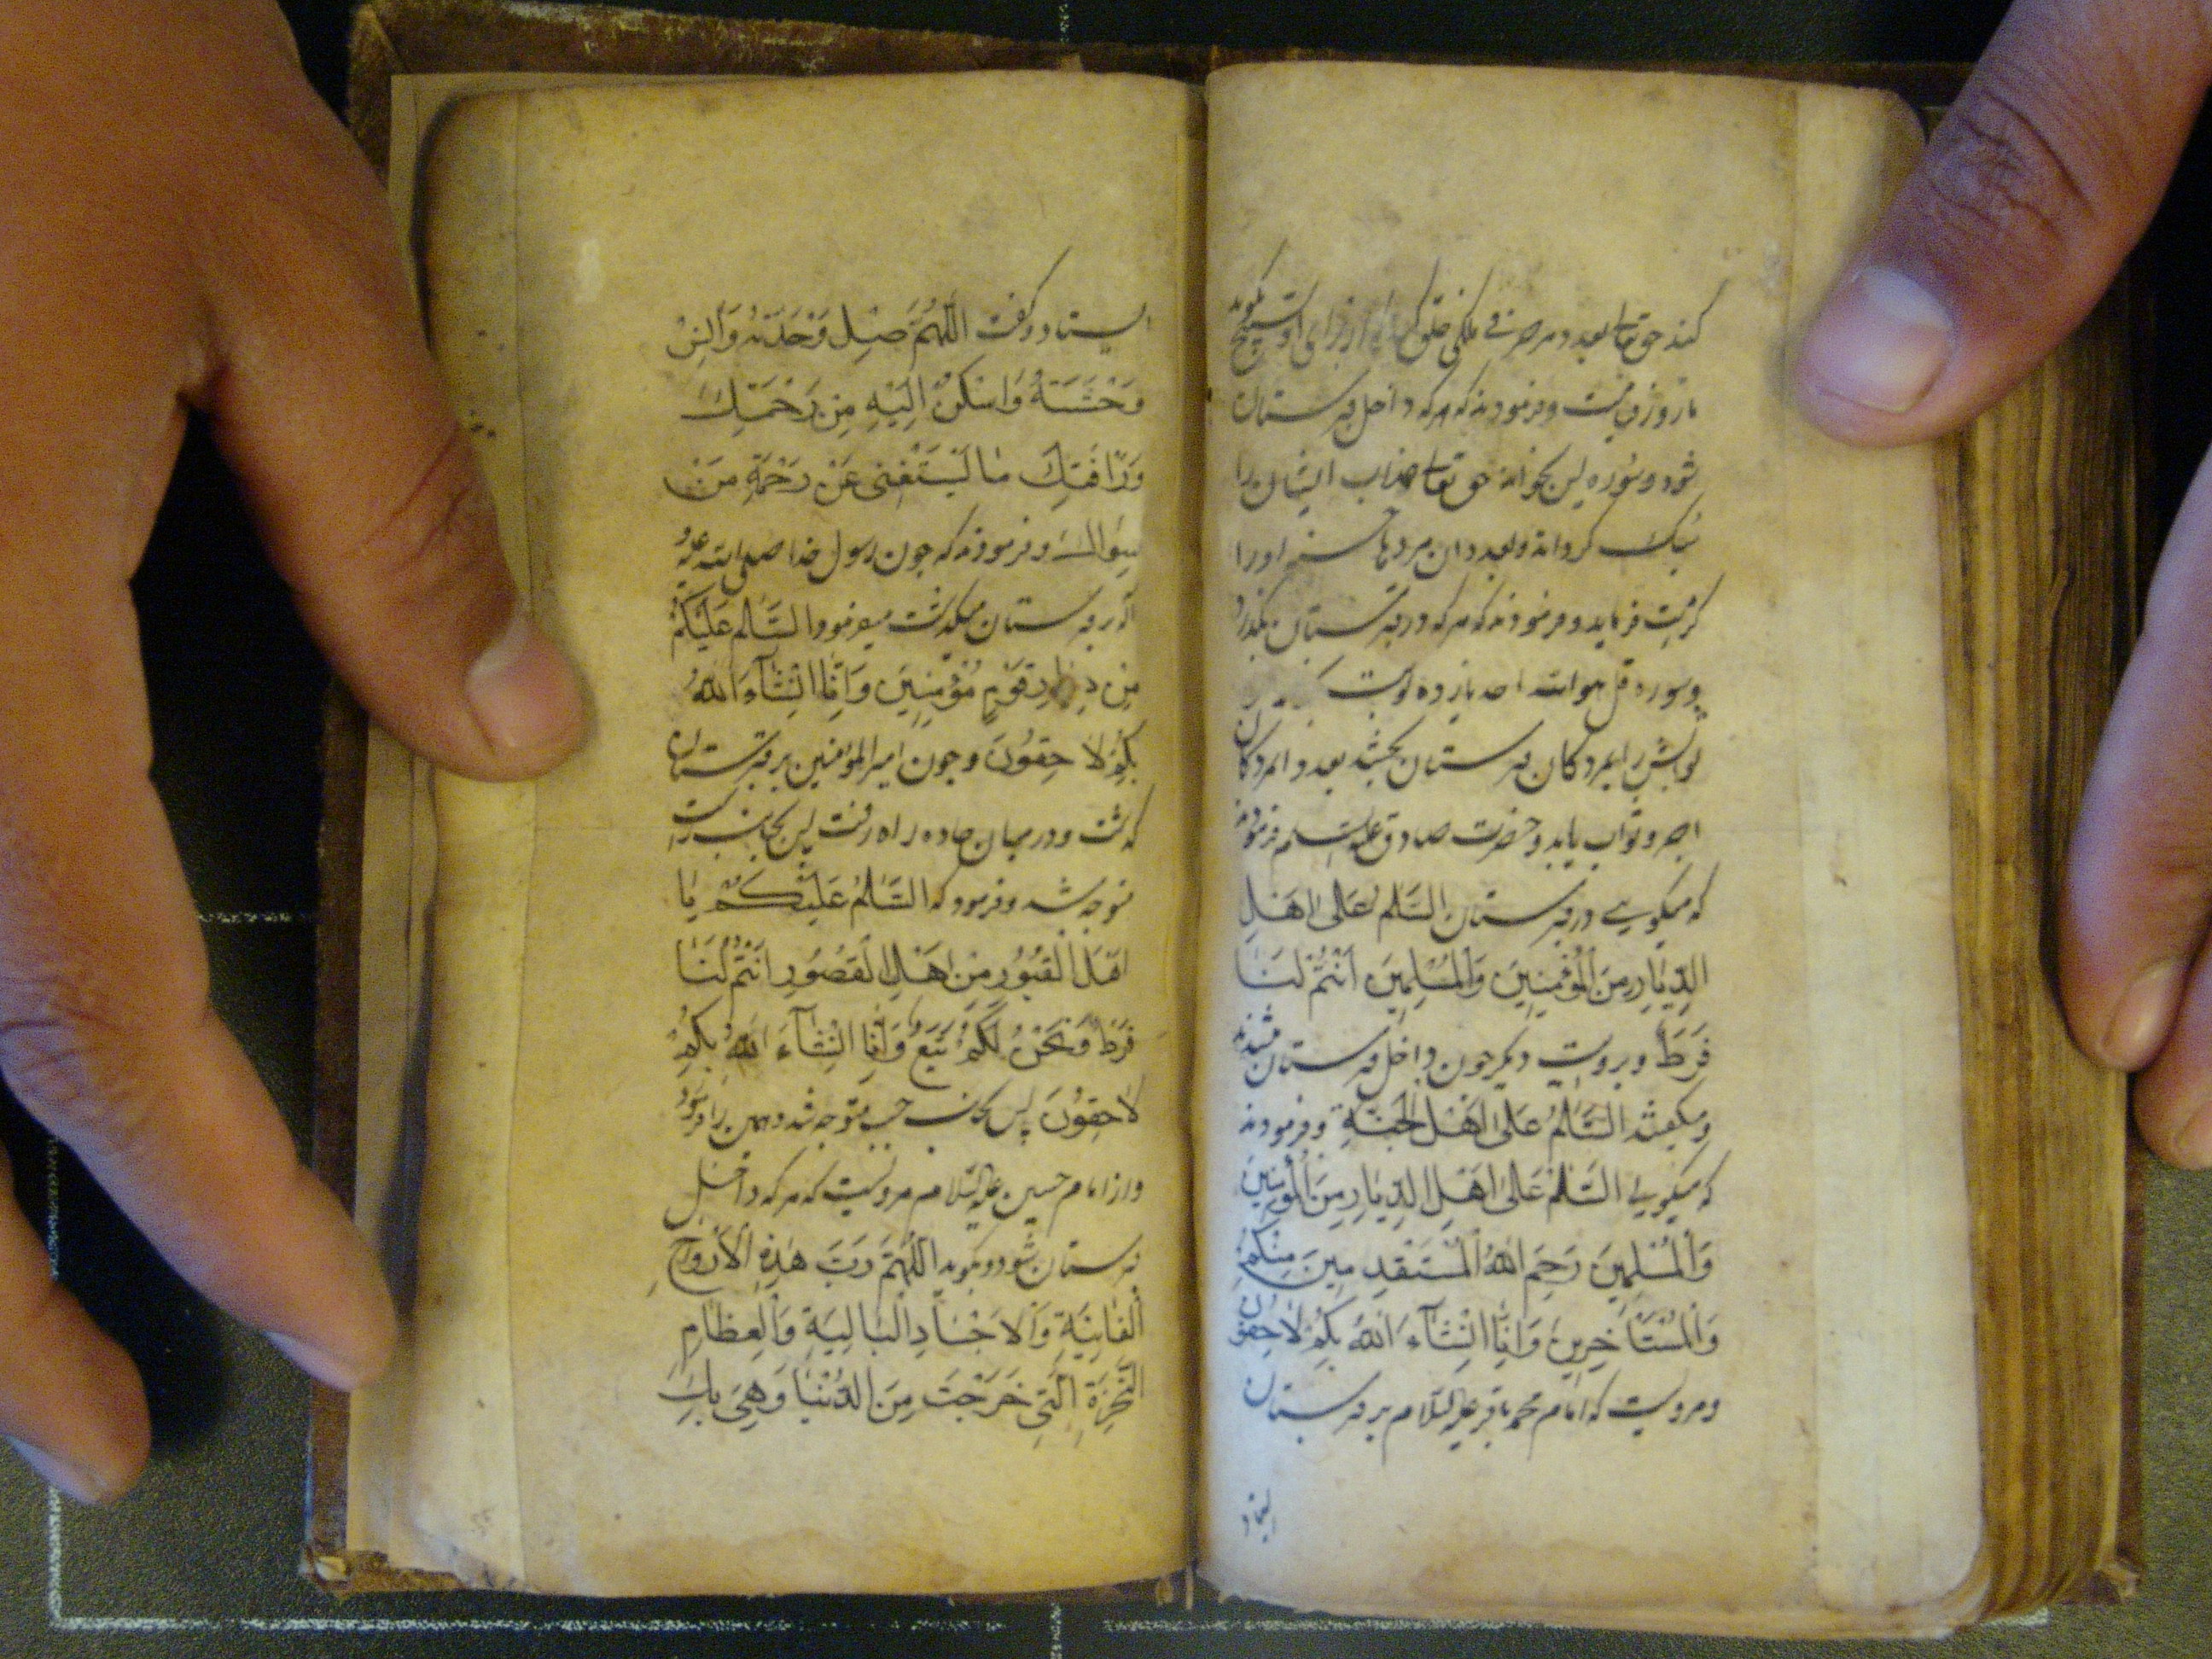 کند حق تعالی بعدد هر حرفی ملکی خلق کند از برای او تسبیح گوید
تا روز قیامت و فرمودند که هر که داخل قبرستان
شود و سوره یس بخواند حق تعالی عذاب ایشان را
سبک گرداند و بعدد آن مردها حسنه او را
کرامت فرماید و فرمودند که هر که در قبرستان بگذرد
و سوره قل هو الله احد یازده نوبت
ثوابش را بمردکان قبرستان بخشد بعدد آن مردکان
اجر و ثواب یابد و حضرت صادق علیه السلم فرمودند
که میگویی در قبرستان السَّلٰمُ عَلٰی اَهْلِ
الدِّیٰارِ مِنَ الْمُؤْمِنِینَ وَالْمُسْلِمِینَ اَنْتُمْ لَنٰا
فَرَطٌ و بروایت دیگر چون داخل قبرستان میشدند
میگفتند السَّلٰمُ عَلٰی اَهْلِ الْجَنَّةِ و فرمودند
که میگویی السَّلٰمُ عَلٰی اَهْلِ الدِّیٰارِ مِنَ الْمُؤْمِنِینَ
وَالْمُسْلِمِینَ رَحِمَ اللهُ الْمُسْتَقْدِمِینَ مِنْکُمْ
وَالْمُسْتَاْخِرِینَ وَاِنّٰا اِنْشٰآءَ اللهُ بِکُمْ لٰاحِقُونَ
و مرویست که امام محمد باقر علیه السلام بر قبرستان
ایستاد
ایستاد و گفت اَللّٰهُمَّ صِلْ وَحْدَتَهُ وَاٰنِسْ
وَحْشَتَهُ وَاَسْکِنْ اِلَیْهِ مِنْ رَحْمَتِكَ
وَرَاْفَتِكَ مٰا یَسْتَغْنِی عَنْ رَحْمَةِ مَنْ
سِوٰاكَ و فرمودند که چون رسول خدا صلی الله علیه و
آله بر قبرستان میگذشت میفرمود السَّلٰمُ عَلَیْکُمْ
مِنْ دِیٰارِ قَوْمٍ مُؤْمِنِینَ وَاِنّٰا اِنْشٰآءَ اللهُ
بِکُمْ لٰاحِقُونَ و چون امیر المؤمنین بر قبرستان
گذشت و در میان جاده راه رفت پس بجانب راست
متوجه شد و فرمود که السَّلٰمُ عَلَیْکُمْ یٰا
اَهْلَ الْقُبُورِ مِنْ اَهْلِ الْقُصُورِ اَنْتُمْ لَنٰا
فَرَطٌ وَنَحْنُ لَکُمْ تَبَعٌ وَاِنّٰا اِنْشٰآءَ اللهُ بِکُمْ
لٰاحِقُونَ پس بجانب چپ متوجه شد و همین را فرمود
و از امام حسین علیه السلام مرویست که هر که داخل
قبرستان شود و بگوید اَللّٰهُمَّ رَبَّ هٰذِهِ الْاَرْوٰاحِ
الْفٰانِیَةِ وَالْاَجْسٰادِ الْبٰالِیَةِ وَالْعِظٰامِ
النَّخِرَةِ الَّتِی خَرَجَتْ مِنَ الدُّنْیٰا وَهِیَ بِكَ